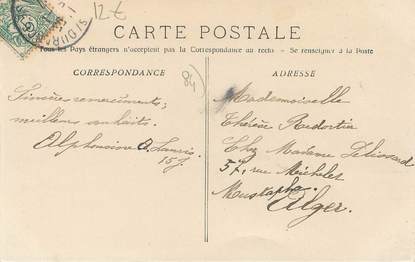 12 €
CARTE POSTALE
Tous les Pays étrangers n'acceptent pas la Correspondance au recto - Se renseigner à la Poste
CORRESPONDANCE
84)
ADRESSE
Sincères remerciements,
meilleurs souhaits.
Alphonsine
15 J.
Mademoiselle
Thérèse
Chez Madame
57, rue Michelet
Mustapha.
Alger.